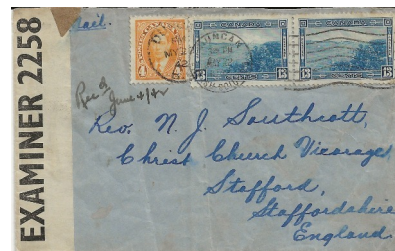 EXAMINER 2258
Mail.
4
DUNCAN
CANADA
13 13
CANADA
13 13
Rec'd
June 4/42
Rev. N. J. Southcott,
Christ Church Vicarage
Stafford,
Staffordshire
England